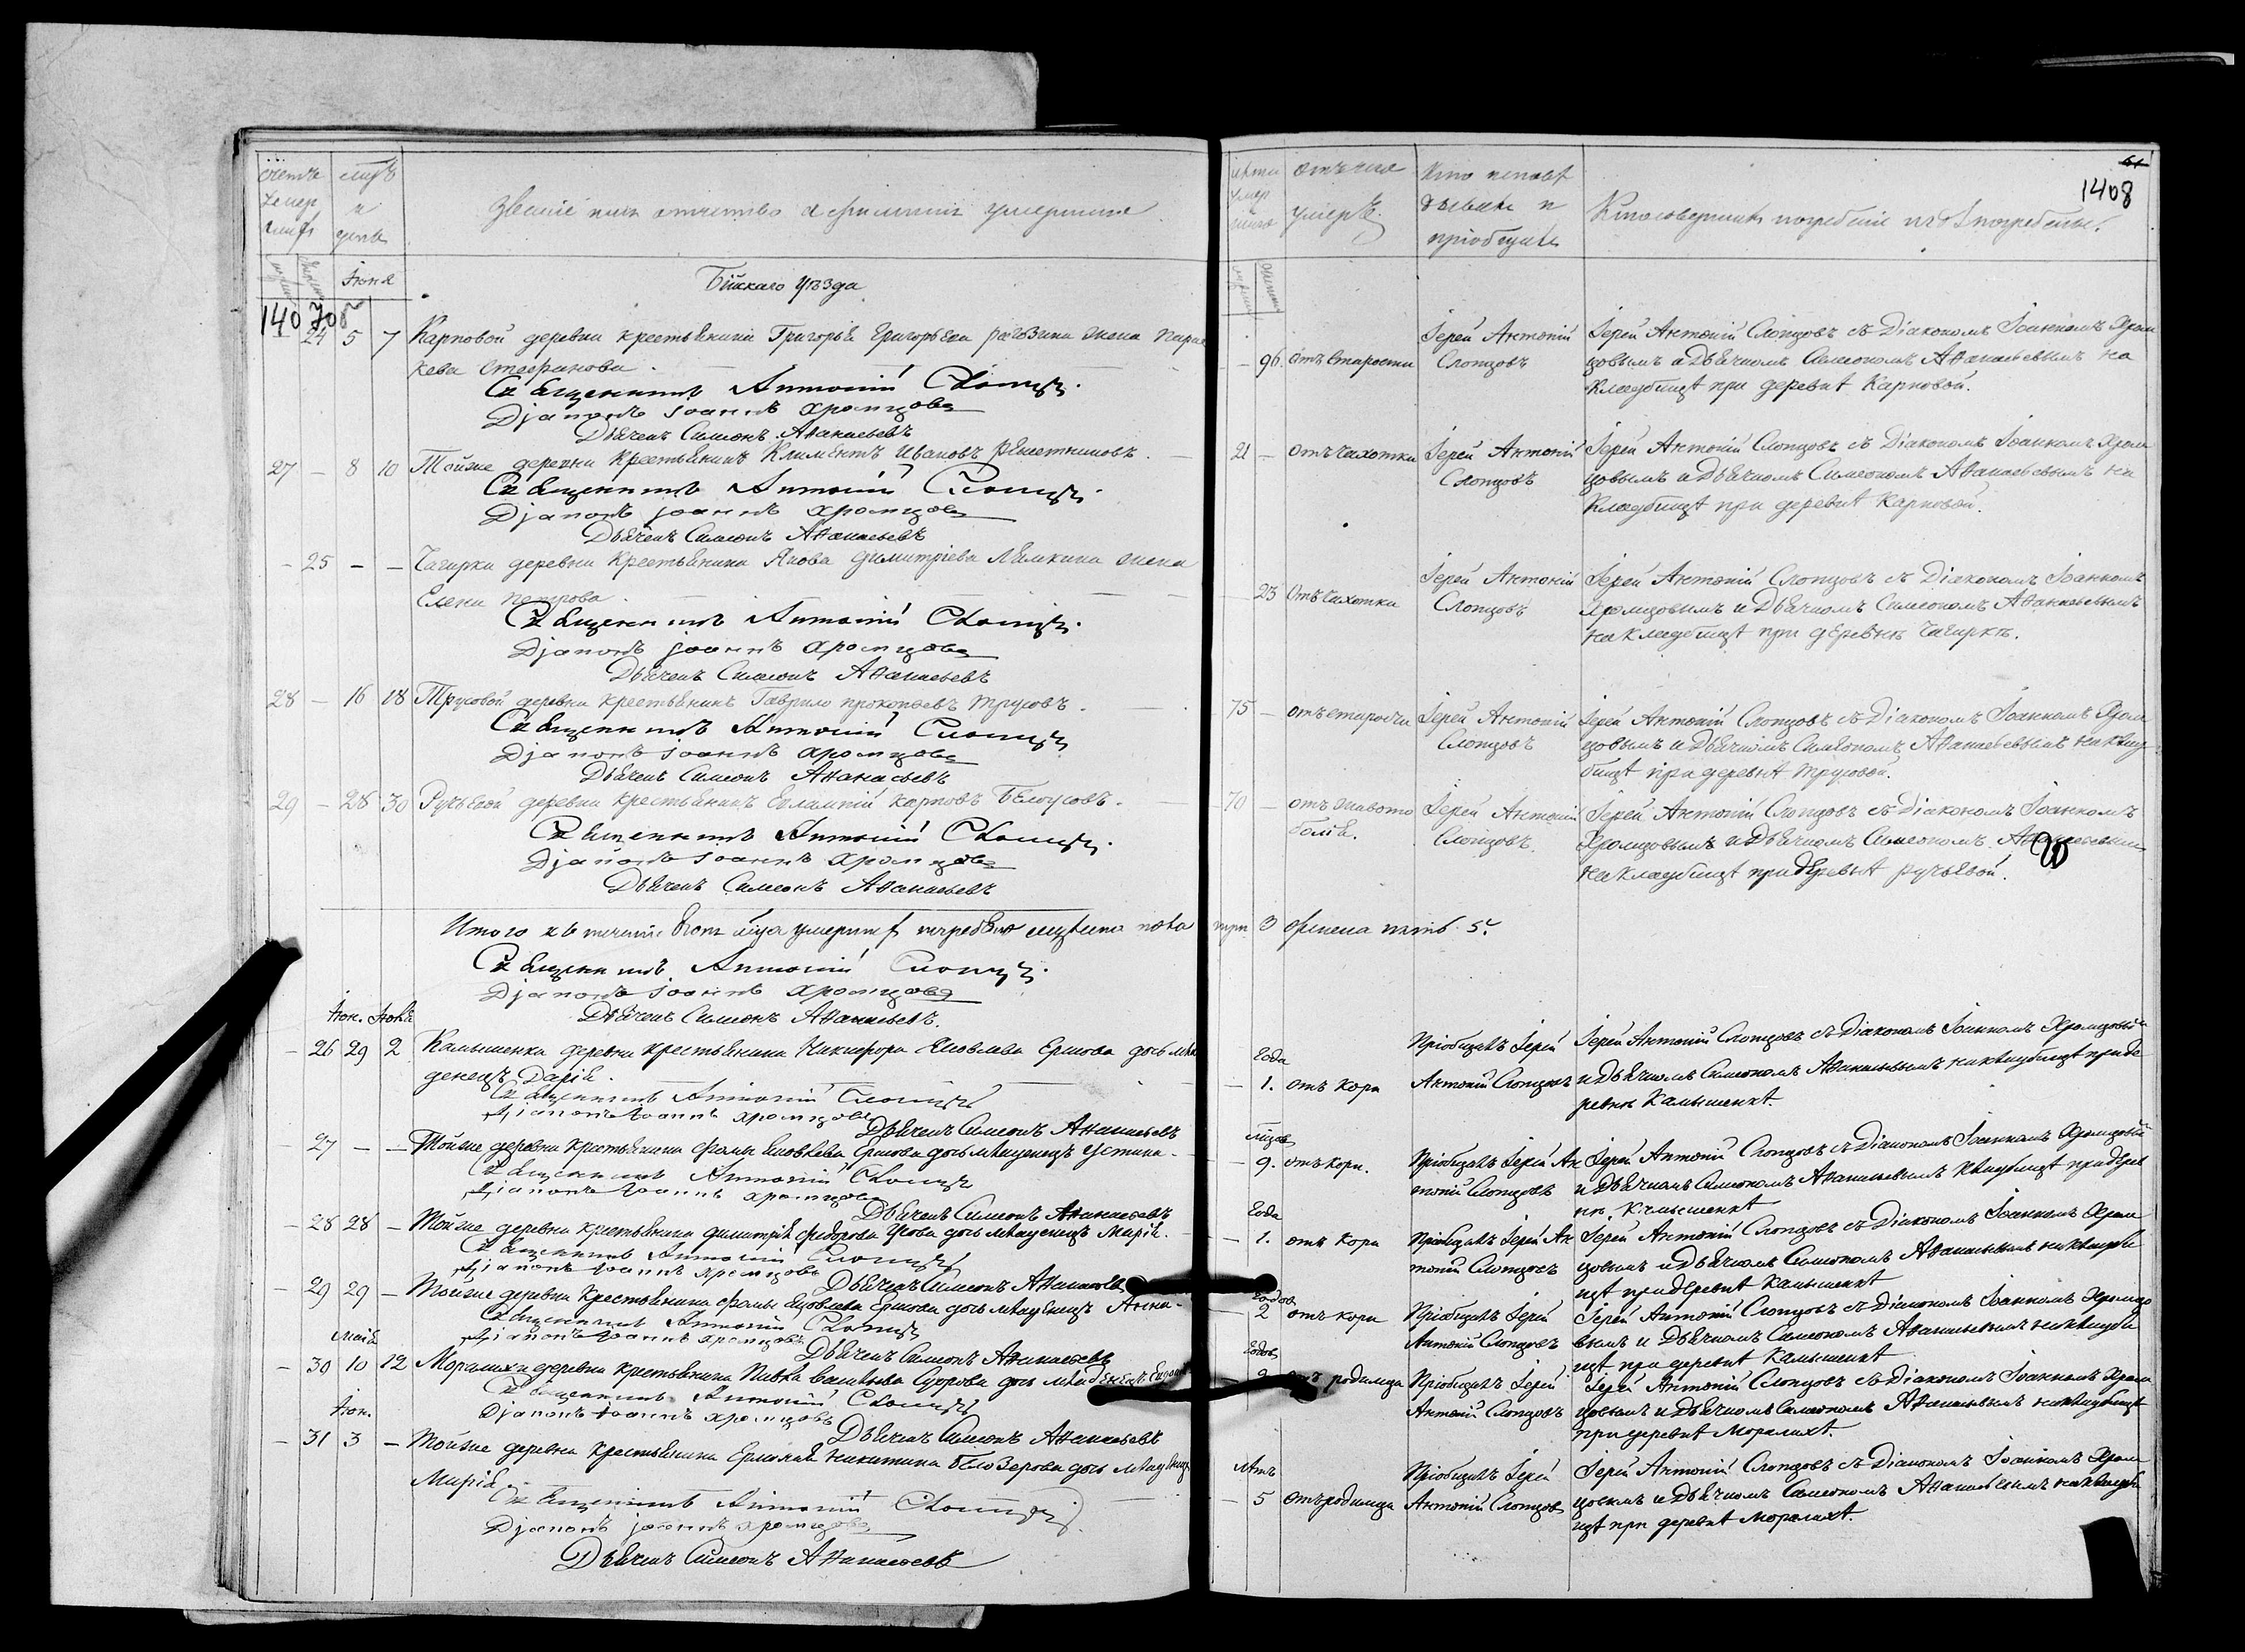 1408
Званіе имя отчество и фамилія умершихъ
Бійскаго уѣзда
Іюня
140 708
24 5 7 Карповой деревни крестьянина Григорья Григорьева Рагозина жена Парас
кева Стефанова.
Священникъ Антоній Слопцовъ.
Діаконъ Іоаннъ Хромцовъ
Дьячекъ Симеонъ Аѳанасьевъ
96. отъ старости
Іерей Антоній
Слопцовъ
Іерей Антоній Слопцовъ съ Діакономъ Іоанномъ Хром
цовымъ и Дьячкомъ Симеономъ Аѳанасьевымъ на
кладбищѣ при деревнѣ Карповой.
27 – 8 10 Тойже деревни крестьянинъ Климентъ Ивановъ Решетниковъ.
Священникъ Антоній Слопцовъ.
Діаконъ Іоаннъ Хромцовъ
Дьячекъ Симеонъ Аѳанасьевъ
21 – отъ чахотки
Іерей Антоній
Слопцовъ
Іерей Антоній Слопцовъ съ Діакономъ Іоанномъ Хром
цовымъ и Дьячкомъ Симеономъ Аѳанасьевымъ на
кладбищѣ при деревнѣ Карповой.
– 25 – – Чагирки деревни крестьянина Якова Димитріева Лямкина жена
Елена Петрова
Священникъ Антоній Слопцовъ.
Діаконъ Іоаннъ Хромцовъ
Дьячекъ Симеонъ Аѳанасьевъ
23 отъ чахотки
Іерей Антоній
Слопцовъ
Іерей Антоній Слопцовъ съ Діакономъ Іоанномъ
Хромцовымъ и Дьячкомъ Симеономъ Аѳанасьевымъ
на кладбищѣ при деревнѣ Чагиркѣ.
28 – 16 18 Трусовой деревни крестьянинъ Гаврило Прокопьевъ Трусовъ.
Священникъ Антоній Слопцовъ
Діаконъ Іоаннъ Хромцовъ
Дьячекъ Симеонъ Аѳанасьевъ
75 – отъ старости
Іерей Антоній
Слопцовъ
Іерей Антоній Слопцовъ съ Діакономъ Іоанномъ Хром
цовымъ и Дьячкомъ Симеономъ Аѳанасьевымъ на клад
бищѣ при деревнѣ Трусовой.
29 – 28 30 Ручьевой деревни крестьянинъ Евлампій Карповъ Белоусовъ.
Священникъ Антоній Слопцовъ.
Діаконъ Іоаннъ Хромцовъ
Дьячекъ Симеонъ Аѳанасьевъ
70 – отъ живото
болія.
Іерей Антоній
Слопцовъ.
Іерей Антоній Слопцовъ съ Діакономъ Іоанномъ
Хромцовымъ и Дьячкомъ Симеономъ Аѳанасьевымъ
на кладбищѣ при деревнѣ Ручьевой.
Итого въ теченіи сего м̃ца умершихъ погребено мущина пола три 3 женска пять 5.
Священникъ Антоній Слопцовъ.
Діаконъ Іоаннъ Хромцовъ
Дьячекъ Симеонъ Аѳанасьевъ.
Іюн. Іюля
– 26 29 2 Камышенка деревни крестьянина Никифора Яковлева Ершова дочь мла
денецъ Дарія.
Священникъ Антоній Слопцовъ
Діаконъ Іоаннъ Хромцовъ
Дьячекъ Симеонъ Аѳанасьевъ
Года
1. отъ кори
Пріобщалъ Іерей
Антоній Слопцовъ
Іерей Антоній Слопцовъ съ Діакономъ Іоанномъ Хромцовым
и Дьячкомъ Симеономъ Аѳанасьевымъ на кладбищѣ при де
ревнѣ Камышенкѣ.
– 27 – – Тойже деревни крестьянина Фомы Яковлева Ершова дочь младенецъ Устина.
Священникъ Антоній Слопцовъ
Діаконъ Іоаннъ Хромцовъ
Дьячекъ Симеонъ Аѳанасьевъ
9. отъ кори.
Пріобщалъ Іерей Ан
тоній Слопцовъ
Іерей Антоній Слопцовъ съ Діакономъ Іоанномъ Хромцовым
и Дьячкомъ Симеономъ Аѳанасьевымъ кладбищѣ при дерев
нѣ. Камышенкѣ
– 28 28 – Тойже деревни крестьянина Димитрія Федорова дочь младенецъ Марія.
Священникъ Антоній Слопцовъ
Діаконъ Іоаннъ Хромцовъ
Дьячекъ Симеонъ Аѳанасьевъ
Года
1. отъ кори
Пріобщалъ Іерей Ан
тоній Слопцовъ
Іерей Антоній Слопцовъ съ Діакономъ Іоанномъ Хром
цовымъ и Дьячкомъ Симеономъ Аѳанасьевымъ на кладби
щѣ при деревнѣ Камышенкѣ
– 29 29 – Тойже деревни крестьянина Фомы Яковлева Ершова дочь младенецъ Анна.
Священникъ Антоній Слопцовъ
Діаконъ Іоаннъ Хромцовъ
Дьячекъ Симеонъ Аѳанасьевъ
Годов
2 отъ кори
Пріобщалъ Іерей
Антоній Слопцовъ
Іерей Антоній Слопцовъ съ Діакономъ Іоанномъ Хромцо
вымъ и Дьячкомъ Симеономъ Аѳанасьевымъ на кладби
щѣ при деревнѣ Камышенкѣ
маія
– 30 10 12 Моралихи деревни крестьянина Павла Васильева дочь младенецъ
Священникъ Антоній Слопцовъ
Діаконъ Іоаннъ Хромцовъ
Дьячекъ Симеонъ Аѳанасьевъ
Годов
родимца
Пріобщалъ Іерей
Антоній Слопцовъ
Іерей Антоній Слопцовъ съ Діакономъ Іоанномъ Хром
цовымъ и Дьячкомъ Симеономъ Аѳанасьевымъ на кладбищѣ
при деревнѣ Моралихѣ.
Іюн.
– 31 3 – Тойже деревни крестьянина Ермолая Никитина Белозерова дочь младенец
Марія
Священникъ Антоній Слопцовъ
Діаконъ Іоаннъ Хромцовъ
Дьячекъ Симеонъ Аѳанасьевъ
лѣтъ
– 5 отъ родимца
Пріобщалъ Іерей
Антоній Слопцовъ
Іерей Антоній Слопцовъ съ Діакономъ Іоанномъ Хром
цовымъ и Дьячкомъ Симеономъ Аѳанасьевымъ на кладби
щѣ при деревнѣ Моралихѣ.